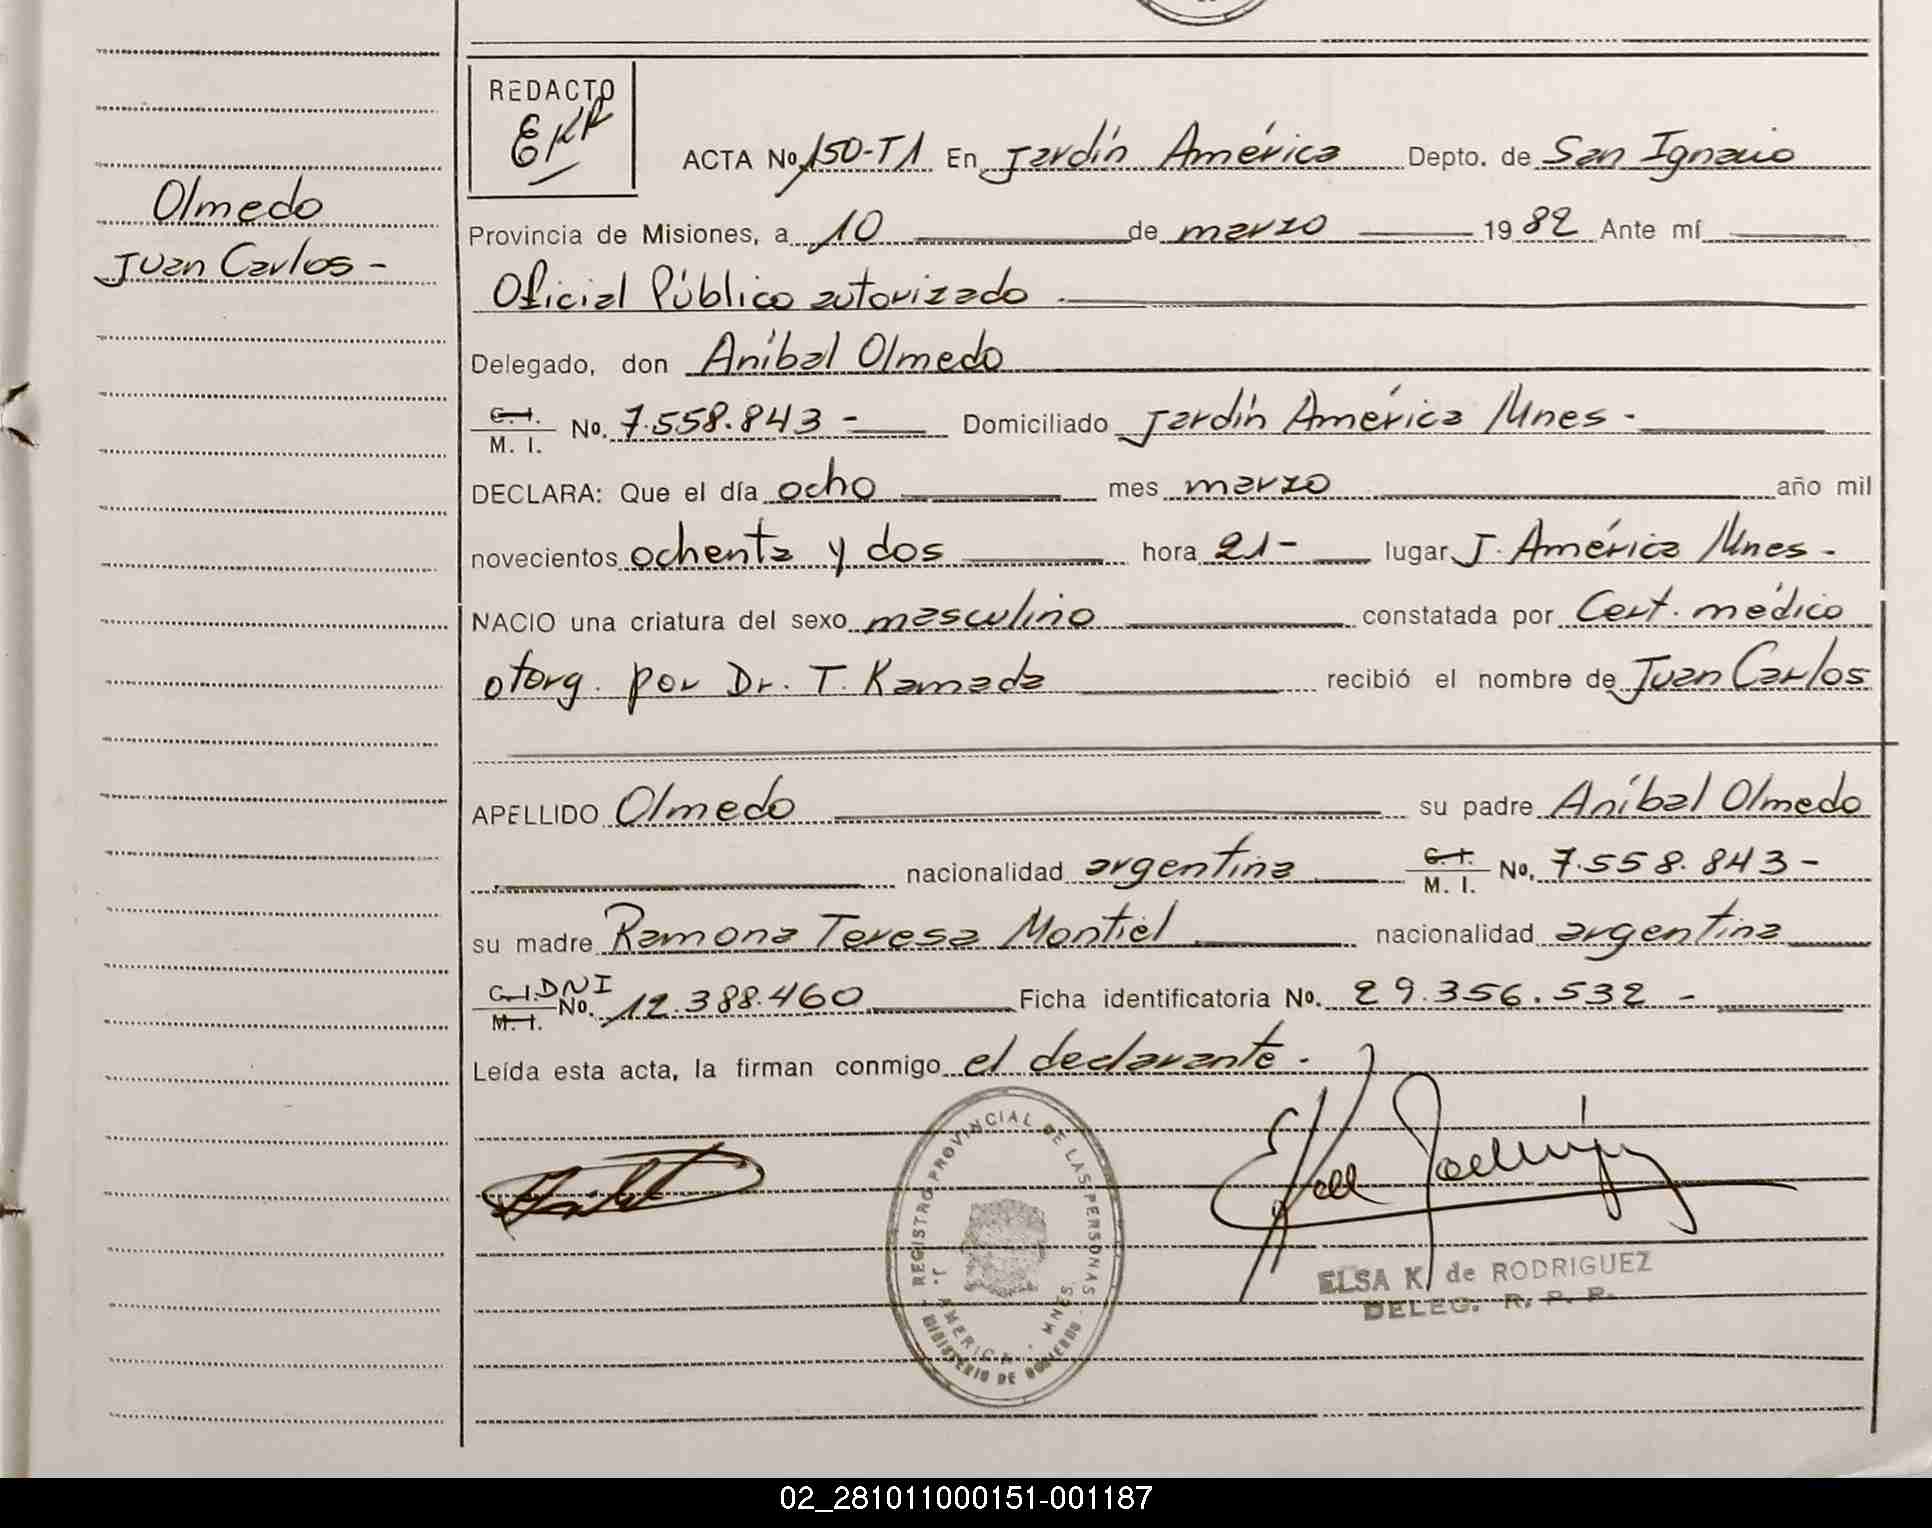 REDACTO
EKR
Olmedo
Juan Carlos -
ACTA No. 150-T1 En Jardín América Depto. de San Ignacio
Provincia de Misiones, a 10 de marzo 1982 Ante mí
Oficial Público autorizado
Delegado, don Aníbal Olmedo
C. I. M. I. No. 7.558.843 - Domiciliado Jardín América Mnes -
DECLARA: Que el día ocho mes marzo año mil
novecientos ochenta y dos hora 21 - lugar J. América Mnes -
NACIO una criatura del sexo masculino constatada por Cert. médico
otorg. por Dr. T. Kamada recibió el nombre de Juan Carlos
APELLIDO Olmedo su padre Aníbal Olmedo
nacionalidad argentina C. I. M. I. No. 7.558.843 -
su madre Ramona Teresa Montiel nacionalidad argentina
C. I. DNI M. I. No. 12.388.460 Ficha identificatoria No. 29.356.532 -
Leída esta acta, la firman conmigo el declarante -
REGISTRO PROVINCIAL DE LAS PERSONAS
J. AMERICA - MNES.
MINISTERIO DE GOBIERNO
ELSA K. de RODRIGUEZ
DELEG. R. P. P.
02_281011000151-001187